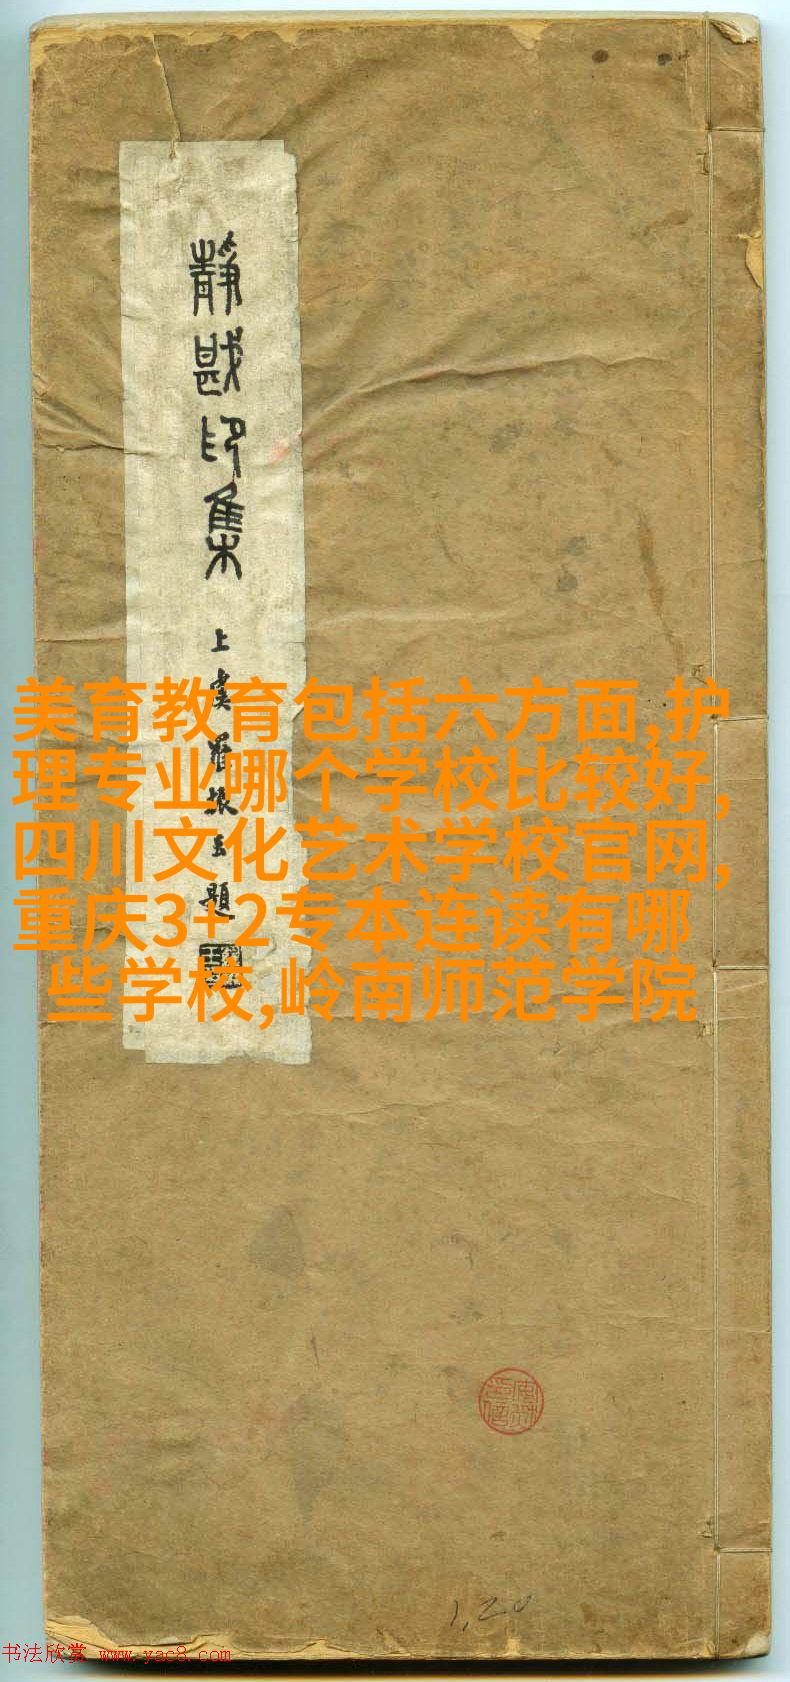 靜戡印集
上虞羅振玉題
美育教育包括六方面,护
理专业哪个学校比较好,
四川文化艺术学校官网,
重庆3+2专本连读有哪
些学校,岭南师范学院
1,20
书法欣赏 www.yac8.com